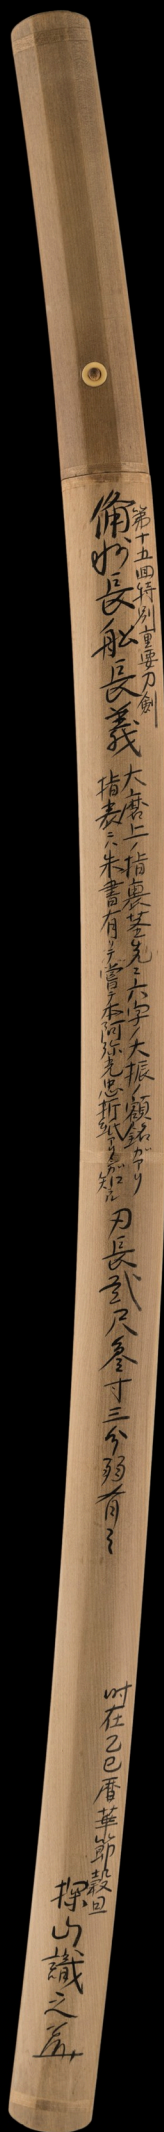 第十五回特別重要刀劍
備州長船長義
大磨上ノ指裏茎先ニ六字ノ大振ノ額銘ガアリ
指表ニハ朱書有リテ嘗テ本阿弥光忠折紙アリシガ知ル
刃長貳尺叄寸三分弱有之
時在乙巳暦華節穀旦
探山識之